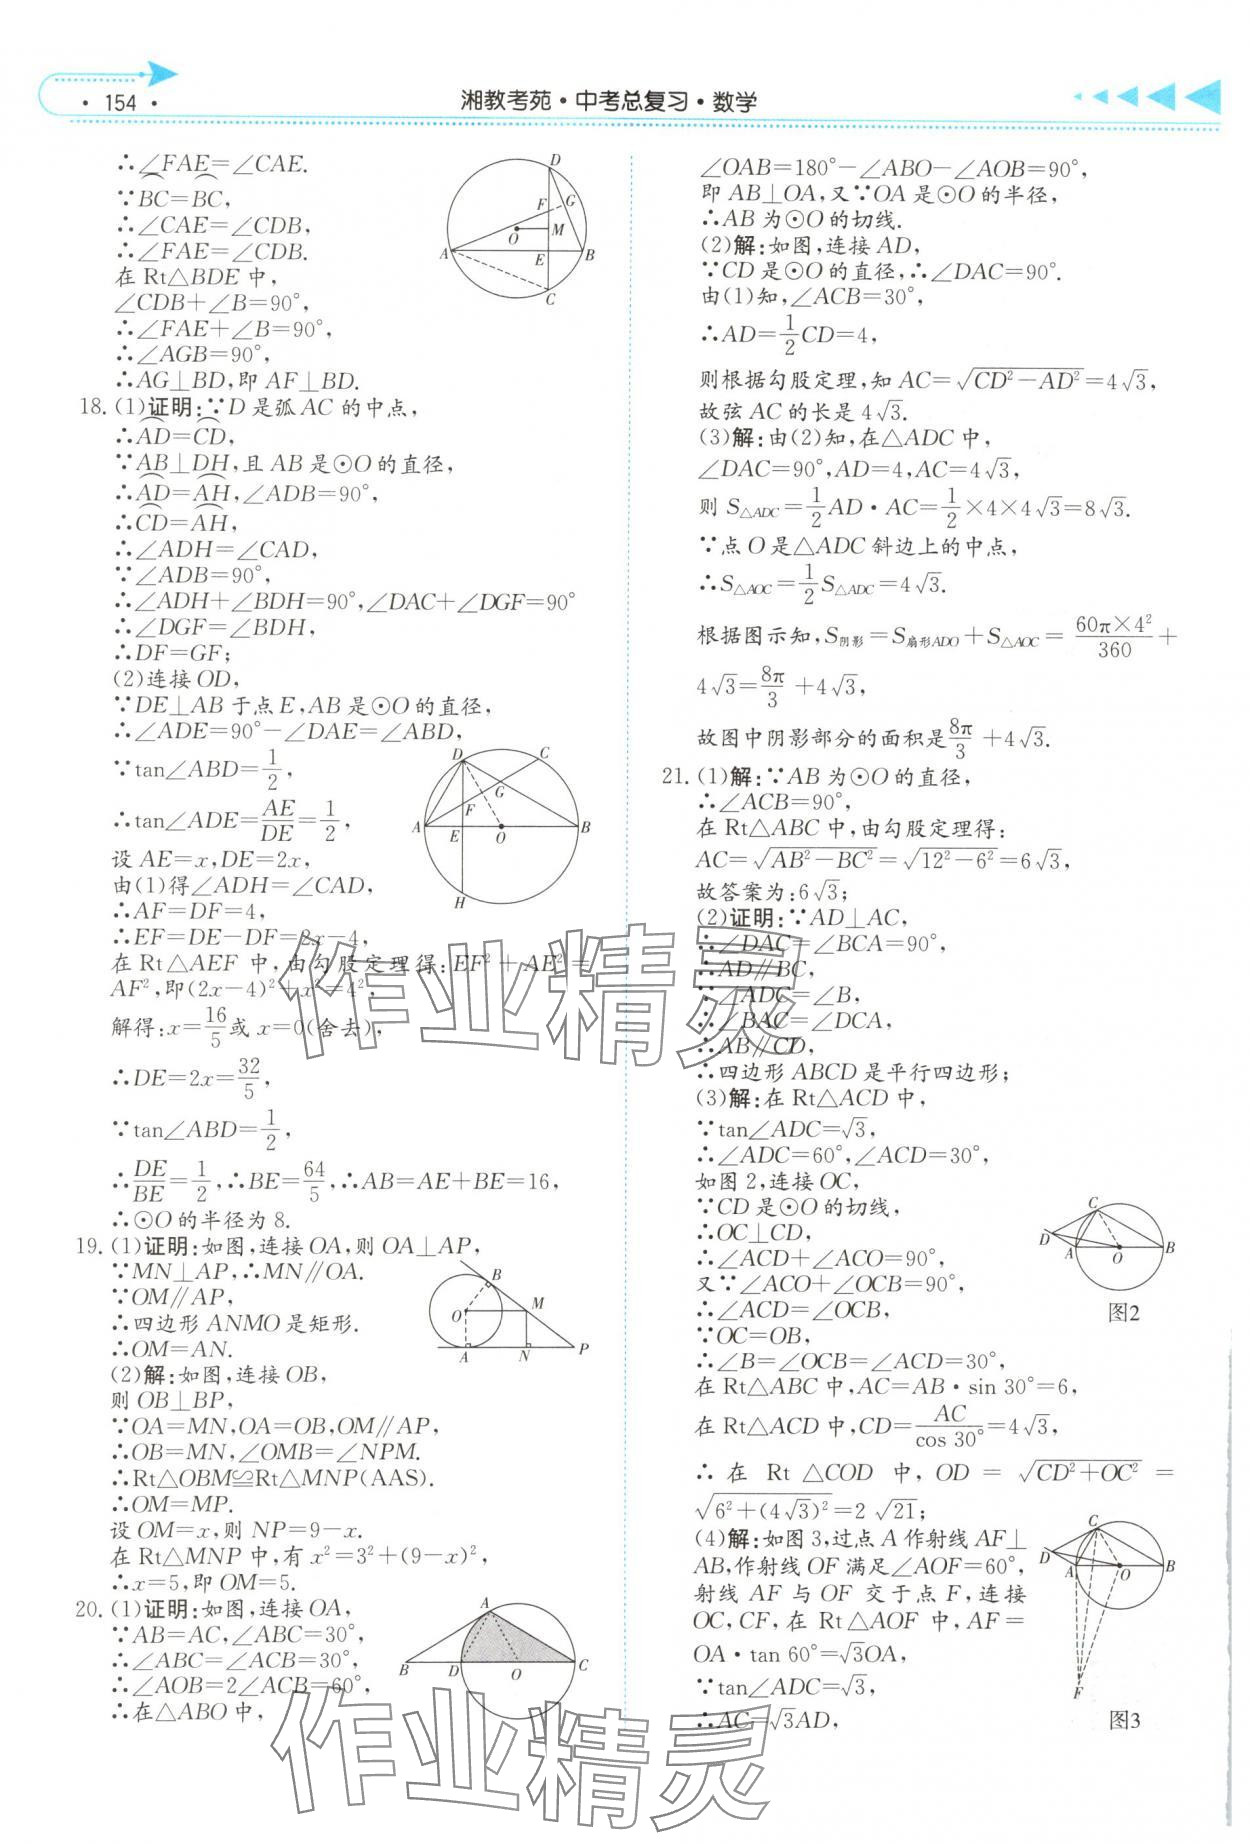 · 154 ·
湘教考苑·中考总复习·数学
∴∠FAE=∠CAE.
∵BC=BC,
∴∠CAE=∠CDB,
∴∠FAE=∠CDB.
在 Rt△BDE 中,
∠CDB+∠B=90°,
∴∠FAE+∠B=90°,
∴∠AGB=90°,
∴AG⊥BD,即 AF⊥BD.
D
F
G
O
M
A
E
B
C
18. (1)证明:∵D 是弧 AC 的中点,
∴AD=CD,
∵AB⊥DH,且 AB 是⊙O 的直径,
∴AD=AH,∠ADB=90°,
∴CD=AH,
∴∠ADH=∠CAD,
∵∠ADB=90°,
∴∠ADH+∠BDH=90°,∠DAC+∠DGF=90°
∴∠DGF=∠BDH,
∴DF=GF;
(2)连接 OD,
∵DE⊥AB 于点 E,AB 是⊙O 的直径,
∴∠ADE=90°−∠DAE=∠ABD,
∵tan∠ABD=1/2,
∴tan∠ADE=AE/DE=1/2,
设 AE=x,DE=2x,
由(1)得∠ADH=∠CAD,
∴AF=DF=4,
∴EF=DE−DF=2x−4,
在 Rt△AEF 中,由勾股定理得:EF²+AE²=
AF²,即(2x−4)²+x²=4²,
解得:x=16/5或 x=0(舍去),
∴DE=2x=32/5,
∵tan∠ABD=1/2,
∴DE/BE=1/2,∴BE=64/5,∴AB=AE+BE=16,
∴⊙O 的半径为 8.
D
C
G
F
A
E
O
B
H
19. (1)证明:如图,连接 OA,则 OA⊥AP,
∵MN⊥AP,∴MN∥OA.
∵OM∥AP,
∴四边形 ANMO 是矩形.
∴OM=AN.
(2)解:如图,连接 OB,
则 OB⊥BP,
∵OA=MN,OA=OB,OM∥AP.
∴OB=MN,∠OMB=∠NPM.
∴Rt△OBM≌Rt△MNP(AAS).
∴OM=MP.
设 OM=x,则 NP=9−x.
在 Rt△MNP 中,有 x²=3²+(9−x)²,
∴x=5,即 OM=5.
B
O
M
A
N
P
20. (1)证明:如图,连接 OA,
∵AB=AC,∠ABC=30°,
∴∠ABC=∠ACB=30°,
∴∠AOB=2∠ACB=60°,
∴在△ABO 中,
A
B
D
O
C
∠OAB=180°−∠ABO−∠AOB=90°,
即 AB⊥OA,又∵OA 是⊙O 的半径,
∴AB 为⊙O 的切线.
(2)解:如图,连接 AD,
∵CD 是⊙O 的直径,∴∠DAC=90°.
由(1)知,∠ACB=30°,
∴AD=1/2CD=4,
则根据勾股定理,知 AC=√(CD²−AD²)=4√3,
故弦 AC 的长是 4√3.
(3)解:由(2)知,在△ADC 中,
∠DAC=90°,AD=4,AC=4√3,
则 S△ADC=1/2AD·AC=1/2×4×4√3=8√3.
∵点 O 是△ADC 斜边上的中点,
∴S△AOC=1/2S△ADC=4√3.
根据图示知,S阴影=S扇形ADO+S△AOC=60π×4²/360+
4√3=8π/3+4√3,
故图中阴影部分的面积是8π/3+4√3.
21. (1)解:∵AB 为⊙O 的直径,
∴∠ACB=90°,
在 Rt△ABC 中,由勾股定理得:
AC=√(AB²−BC²)=√(12²−6²)=6√3,
故答案为:6√3;
(2)证明:∵AD⊥AC,
∴∠DAC=∠BCA=90°,
∴AD∥BC,
∵∠ADC=∠B,
∴∠BAC=∠DCA,
∴AB∥CD,
∴四边形 ABCD 是平行四边形;
(3)解:在 Rt△ACD 中,
∵tan∠ADC=√3,
∴∠ADC=60°,∠ACD=30°,
如图 2,连接 OC,
∵CD 是⊙O 的切线,
∴OC⊥CD,
∴∠ACD+∠ACO=90°,
又∵∠ACO+∠OCB=90°,
∴∠ACD=∠OCB,
∵OC=OB,
∴∠B=∠OCB=∠ACD=30°,
在 Rt△ABC 中,AC=AB·sin 30°=6,
在 Rt△ACD 中,CD=AC/cos 30°=4√3,
∴ 在 Rt △COD 中, OD = √(CD²+OC²) =
√(6²+(4√3)²)=2√21;
C
D
A
O
B
图2
(4)解:如图 3,过点 A 作射线 AF⊥
AB,作射线 OF 满足∠AOF=60°,
射线 AF 与 OF 交于点 F,连接
OC,CF,在 Rt△AOF 中,AF=
OA·tan 60°=√3OA,
∵tan∠ADC=√3,
∴AC=√3AD,
C
D
A
O
B
F
图3
作业精灵
作业精灵